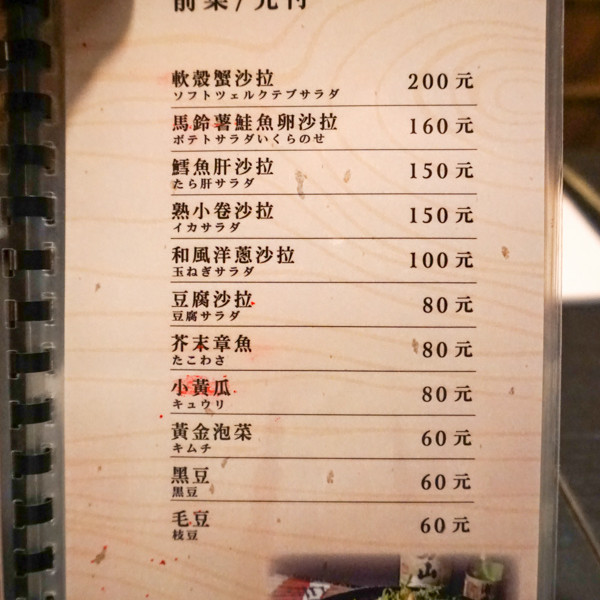 前菜/先付
軟殼蟹沙拉 200元
ソフトツェルクテブサラダ
馬鈴薯鮭魚卵沙拉 160元
ポテトサラダいくらのせ
鱈魚肝沙拉 150元
たら肝サラダ
熟小卷沙拉 150元
イカサラダ
和風洋蔥沙拉 100元
玉ねぎサラダ
豆腐沙拉 80元
豆腐サラダ
芥末章魚 80元
たこわさ
小黃瓜 80元
キュウリ
黃金泡菜 60元
キムチ
黑豆 60元
黒豆
毛豆 60元
枝豆
山